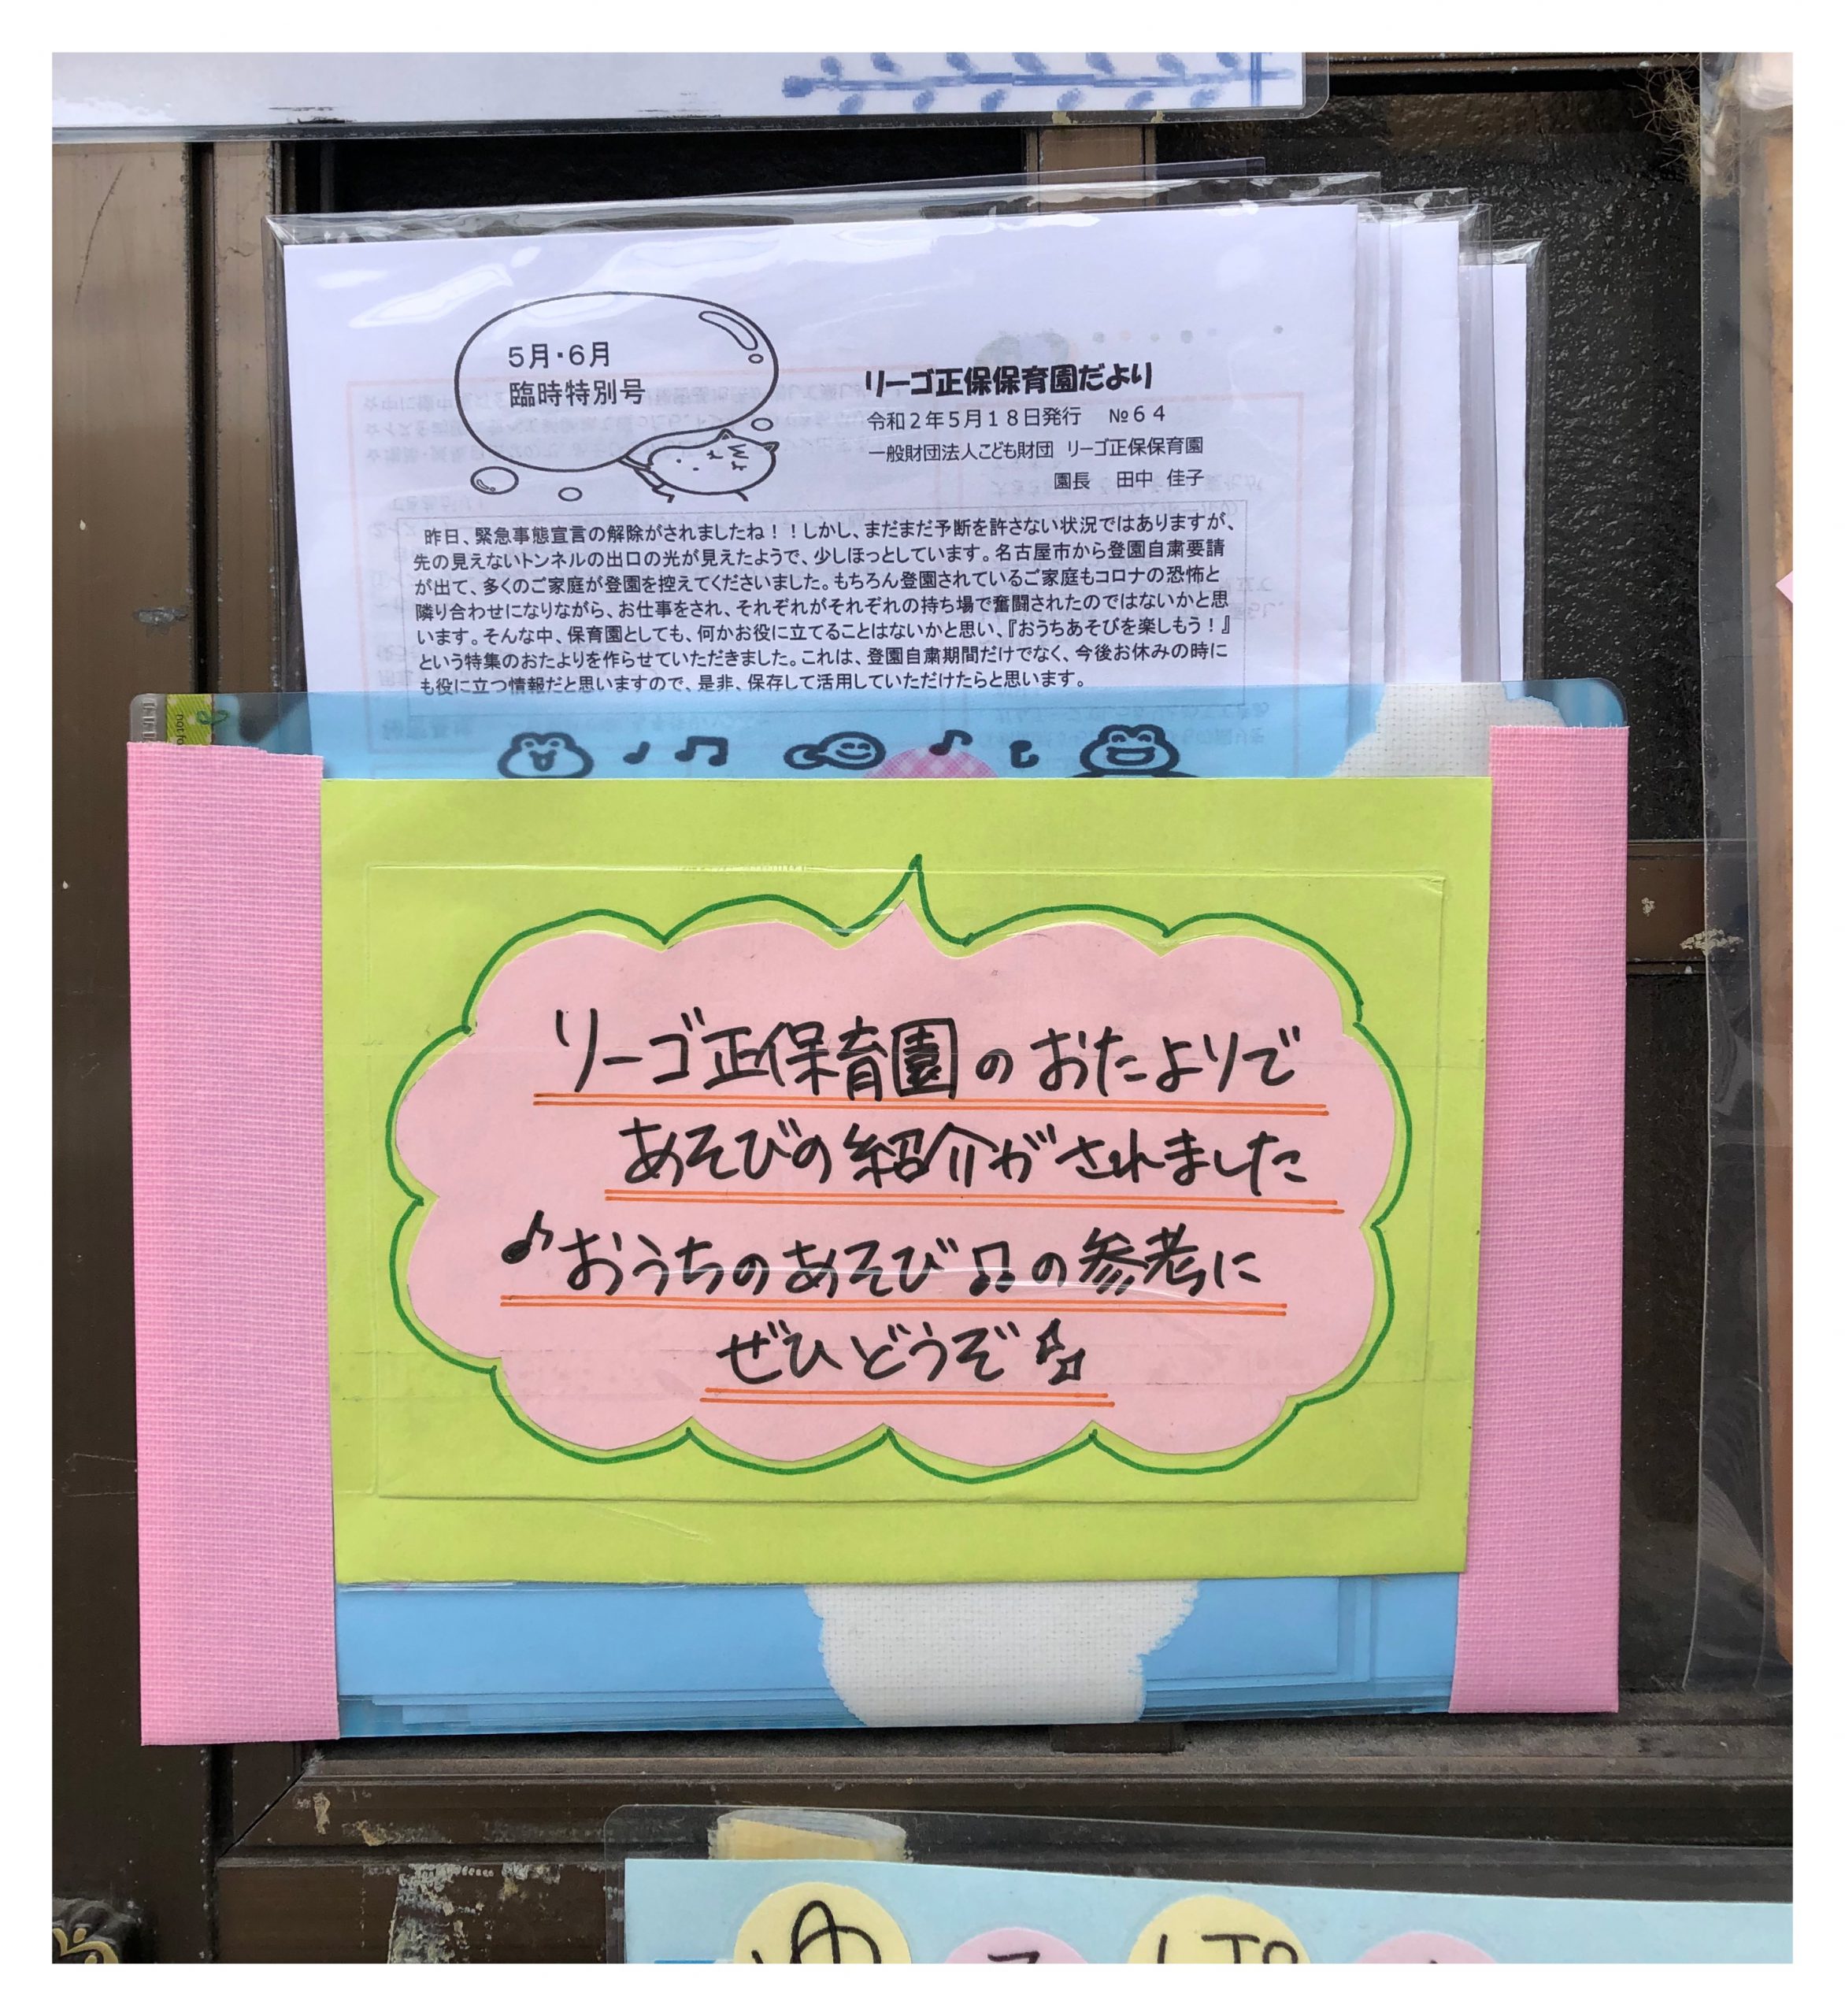 5月・6月
臨時特別号
リーゴ正保保育園だより
令和2年5月18日発行　№64
一般財団法人こども財団　リーゴ正保保育園
園長　田中　佳子
昨日、緊急事態宣言の解除がされましたね！！しかし、まだまだ予断を許さない状況ではありますが、
先の見えないトンネルの出口の光が見えたようで、少しほっとしています。名古屋市から登園自粛要請
が出て、多くのご家庭が登園を控えてくださいました。もちろん登園されているご家庭もコロナの恐怖と
隣り合わせになりながら、お仕事をされ、それぞれがそれぞれの持ち場で奮闘されたのではないかと思
います。そんな中、保育園としても、何かお役に立てることはないかと思い、『おうちあそびを楽しもう！』
という特集のおたよりを作らせていただきました。これは、登園自粛期間だけでなく、今後お休みの時に
も役に立つ情報だと思いますので、是非、保存して活用していただけたらと思います。
リーゴ正保育園のおたよりで
あそびの紹介がされました
♪おうちのあそび♫の参考に
ぜひどうぞ